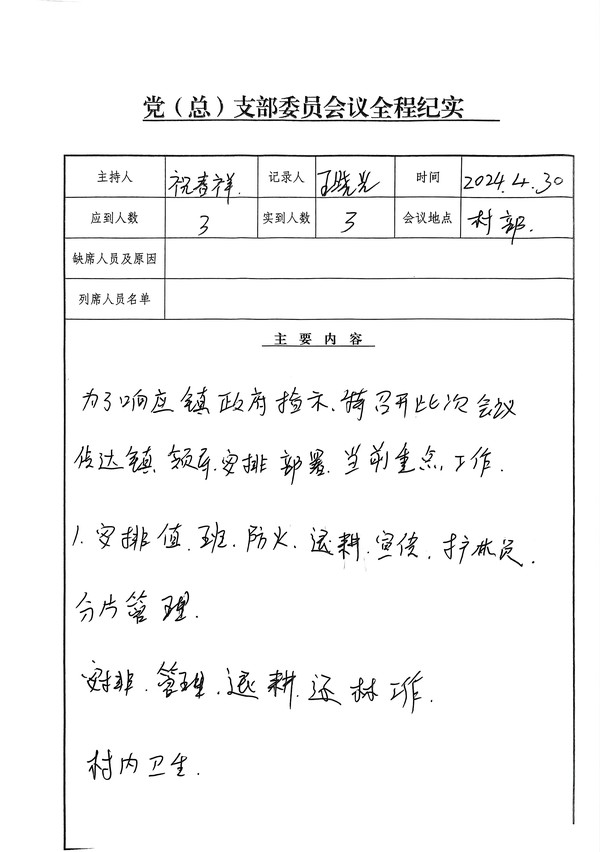 党（总）支部委员会议全程纪实
主持人 祝春祥. 记录人 王晓光 时间 2024.4.30
应到人数 3 实到人数 3 会议地点 村部.
缺席人员及原因
列席人员名单
主要内容
为了响应镇政府指示.特召开此次会议
传达镇领导.安排部署.当前重点工作.
1.安排值.班.防火.退耕.宣传.护林员.
分片管理.
安排.管理.退耕.还林工作.
村内卫生.